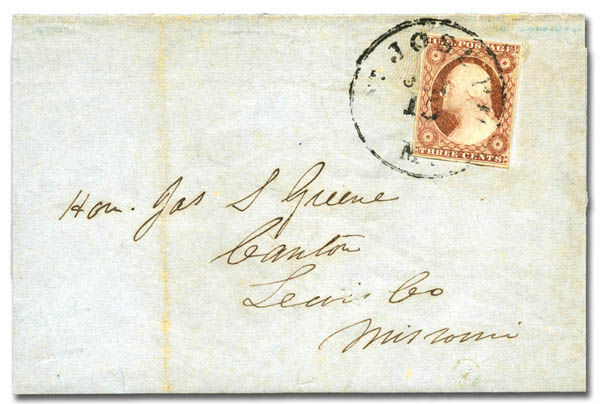 ST. JOSEPH
10
M
U.S. POSTAGE
THREE CENTS.
Hon. Jas S Greene
Canton
Lewis Co
Missouri